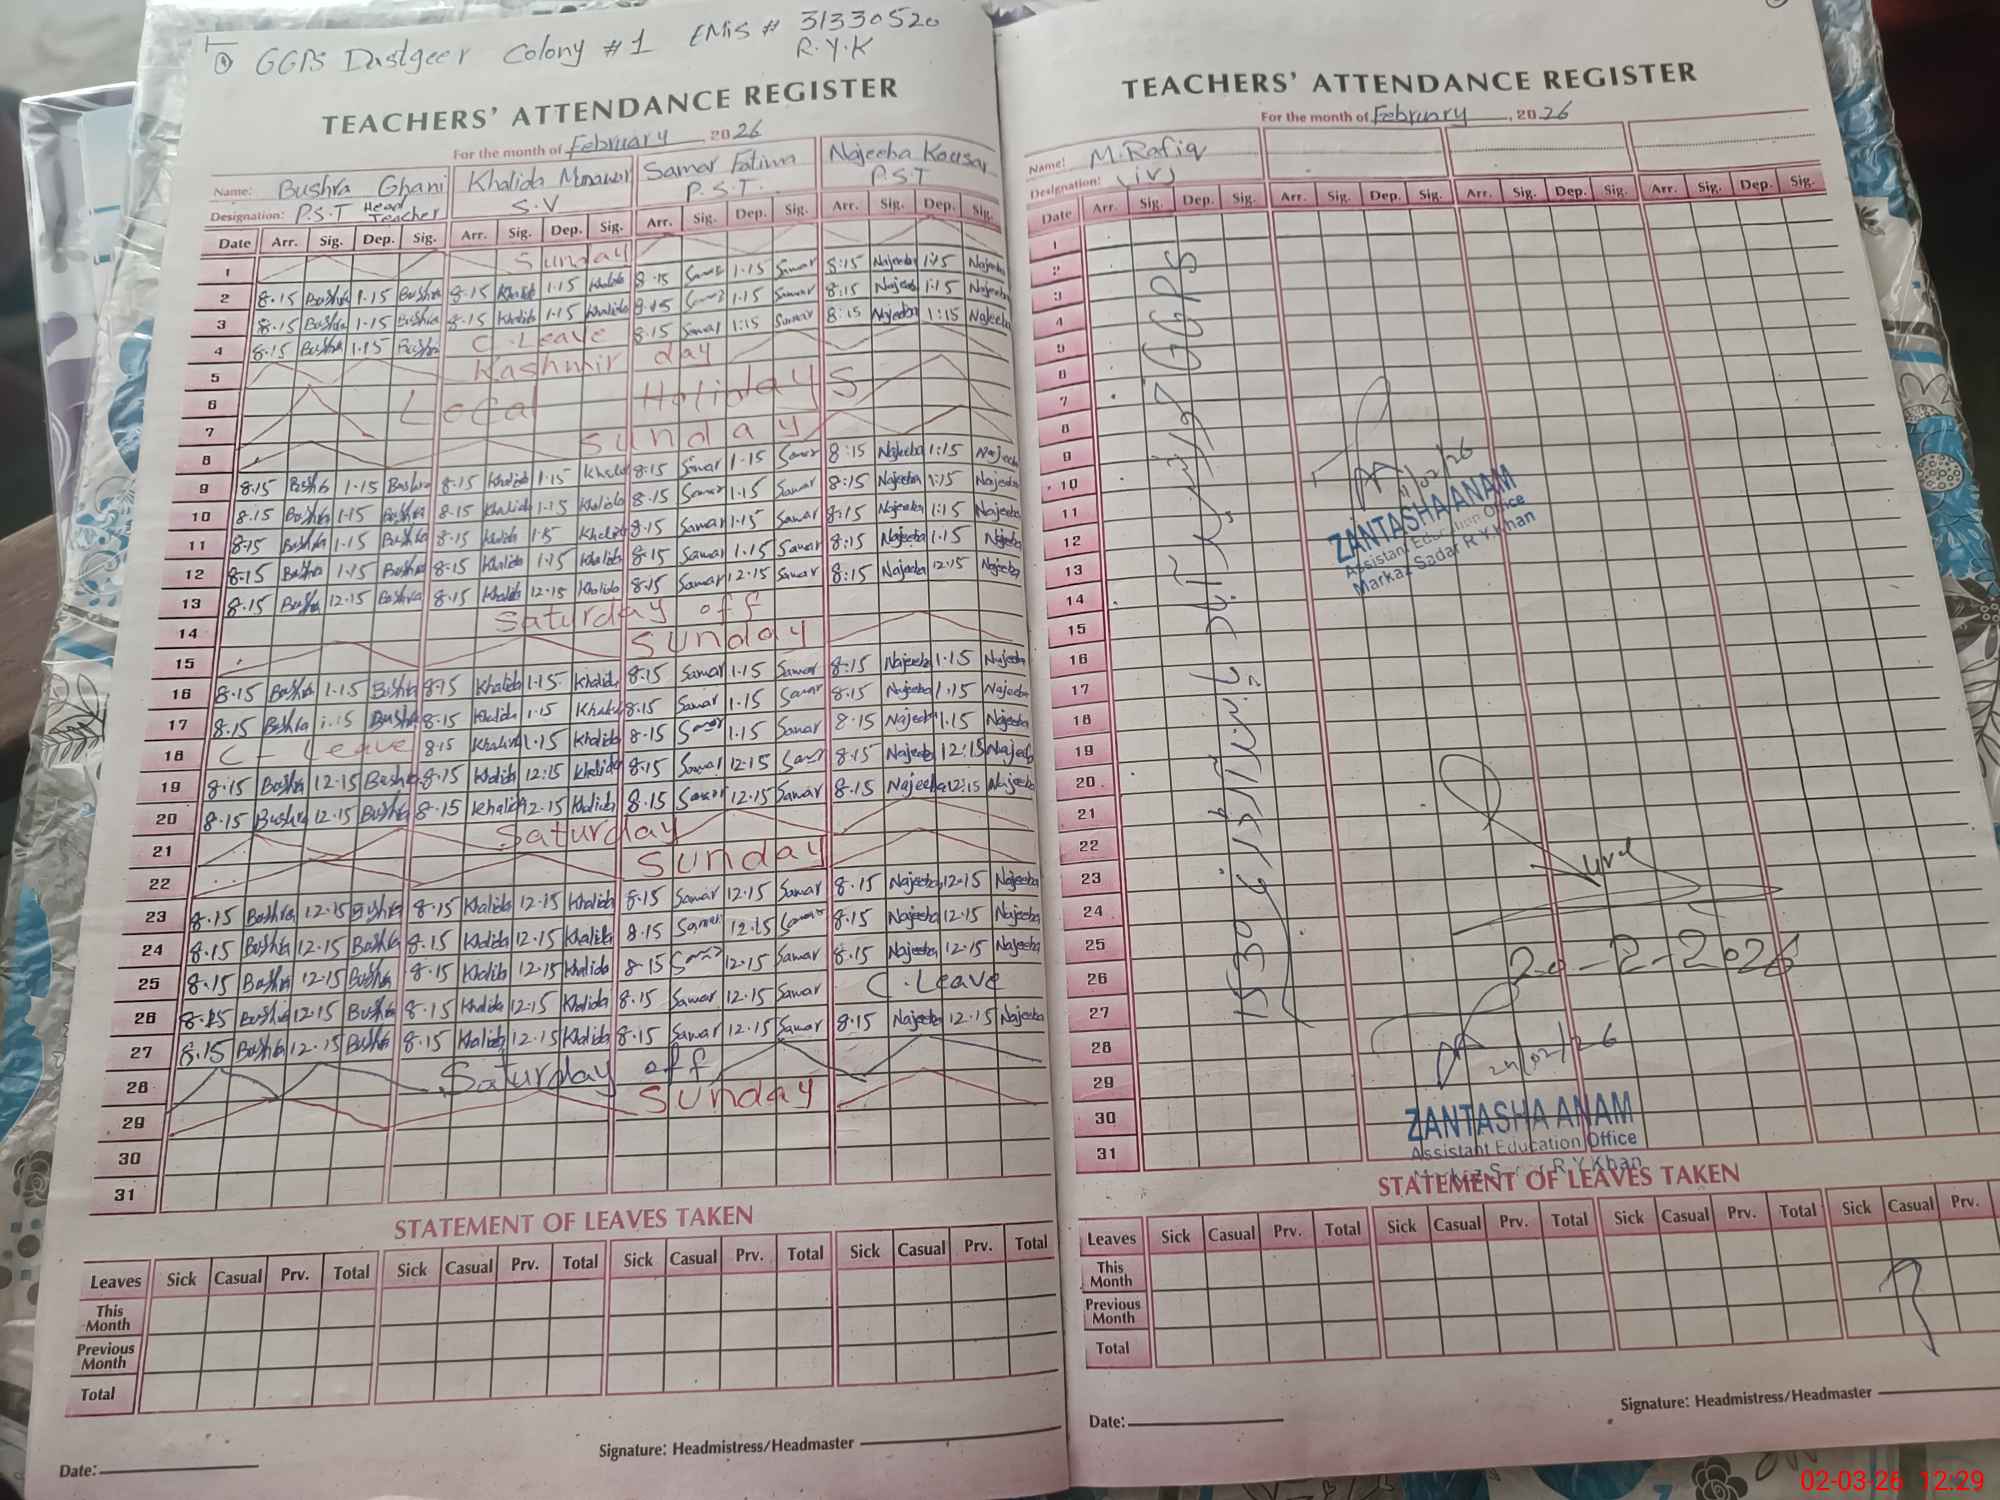 GGPS Dastgeer Colony #1 EMIS # 31330520
R.Y.K
TEACHERS' ATTENDANCE REGISTER
For the month of February, 2026
Name: Bushra Ghani Khalida Munawar Samar Fatima Najeeba Kousar
Designation: P.S.T Head Teacher S.V P.S.T. P.S.T
Date Arr. Sig. Dep. Sig. Arr. Sig. Dep. Sig. Arr. Sig. Dep. Sig. Arr. Sig. Dep. Sig.
1 Sunday
2 8.15 Bushra 1.15 Bushra 8.15 Khalida 1.15 Khalida 8.15 Samar 1.15 Samar 8:15 Najeeba 1:15 Najeeba
3 8.15 Bushra 1.15 Bushra 8.15 Khalida 1.15 Khalida 8.15 Samar 1.15 Samar 8:15 Najeeba 1:15 Najeeba
4 8.15 Bushra 1.15 Bushra C. Leave 8.15 Samar 1:15 Samar 8:15 Najeeba 1:15 Najeeba
5 Kashmir day
6 Local Holidays
7
8 Sunday
9 8.15 Bushra 1.15 Bushra 8.15 Khalida 1.15 Khalida 8.15 Samar 1.15 Samar 8:15 Najeeba 1:15 Najeeba
10 8.15 Bushra 1.15 Bushra 8.15 Khalida 1.15 Khalida 8.15 Samar 1.15 Samar 8:15 Najeeba 1:15 Najeeba
11 8.15 Bushra 1.15 Bushra 8.15 Khalida 1.15 Khalida 8.15 Samar 1.15 Samar 8:15 Najeeba 1:15 Najeeba
12 8.15 Bushra 1.15 Bushra 8.15 Khalida 1.15 Khalida 8.15 Samar 1.15 Samar 8:15 Najeeba 1.15 Najeeba
13 8.15 Bushra 12.15 Bushra 8.15 Khalida 12.15 Khalida 8.15 Samar 12.15 Samar 8:15 Najeeba 12:15 Najeeba
14 Saturday off
15 Sunday
16 8.15 Bushra 1.15 Bushra 8.15 Khalida 1.15 Khalida 8.15 Samar 1.15 Samar 8:15 Najeeba 1.15 Najeeba
17 8.15 Bushra 1.15 Bushra 8.15 Khalida 1.15 Khalida 8.15 Samar 1.15 Samar 8.15 Najeeba 1.15 Najeeba
18 C - Leave 8.15 Khalida 1.15 Khalida 8.15 Samar 1.15 Samar 8.15 Najeeba 1.15 Najeeba
19 8.15 Bushra 12.15 Bushra 8.15 Khalida 12:15 Khalida 8.15 Samar 12.15 Samar 8.15 Najeeba 12:15 Najeeba
20 8.15 Bushra 12.15 Bushra 8.15 Khalida 12.15 Khalida 8.15 Samar 12.15 Samar 8.15 Najeeba 12:15 Najeeba
21 Saturday
22 Sunday
23 8.15 Bushra 12.15 Bushra 8.15 Khalida 12.15 Khalida 8.15 Samar 12.15 Samar 8.15 Najeeba 12.15 Najeeba
24 8.15 Bushra 12.15 Bushra 8.15 Khalida 12.15 Khalida 8.15 Samar 12.15 Samar 8.15 Najeeba 12.15 Najeeba
25 8.15 Bushra 12.15 Bushra 8.15 Khalida 12.15 Khalida 8.15 Samar 12.15 Samar 8.15 Najeeba 12.15 Najeeba
26 8.15 Bushra 12.15 Bushra 8.15 Khalida 12.15 Khalida 8.15 Samar 12.15 Samar C. Leave
27 8.15 Bushra 12.15 Bushra 8.15 Khalida 12.15 Khalida 8.15 Samar 12.15 Samar 8.15 Najeeba 12.15 Najeeba
28 Saturday off
29 Sunday
30
31
STATEMENT OF LEAVES TAKEN
Leaves Sick Casual Prv. Total Sick Casual Prv. Total Sick Casual Prv. Total Sick Casual Prv. Total
This Month
Previous Month
Total
Signature: Headmistress/Headmaster
Date:
TEACHERS' ATTENDANCE REGISTER
For the month of February, 2026
Name: M. Rafiq
Designation: (iv)
Date Arr. Sig. Dep. Sig. Arr. Sig. Dep. Sig. Arr. Sig. Dep. Sig. Arr. Sig. Dep. Sig.
1
2
3
4
5
6
7
8
9
10
11
12
13
14
15
16
17
18
19
20
21
22
23
24
25
26
27
28
29
30
31
GGPS
11/02/26
ZANTASHA ANAM
Assistant Education Office
Markaz Sadar R.Y.Khan
20-2-2026
24/02/26
ZANTASHA ANAM
Assistant Education Office
R.Y.Khan
STATEMENT OF LEAVES TAKEN
Leaves Sick Casual Prv. Total Sick Casual Prv. Total Sick Casual Prv. Total Sick Casual Prv.
This Month
Previous Month
Total
Signature: Headmistress/Headmaster
Date:
02-03-26 12:29